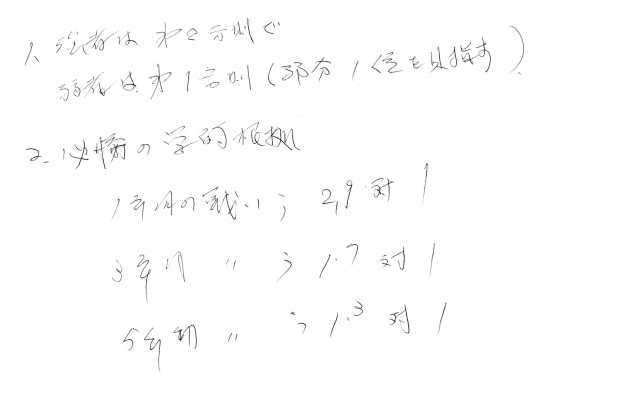 1. 強者は第2法則で
弱者は第1法則(部分1位を目指す)
2. 必勝の学的根拠
1年間の戦い; 2,9対1
3年間 〃 ; 1.7対1
5年間 〃 ; 1.3対1